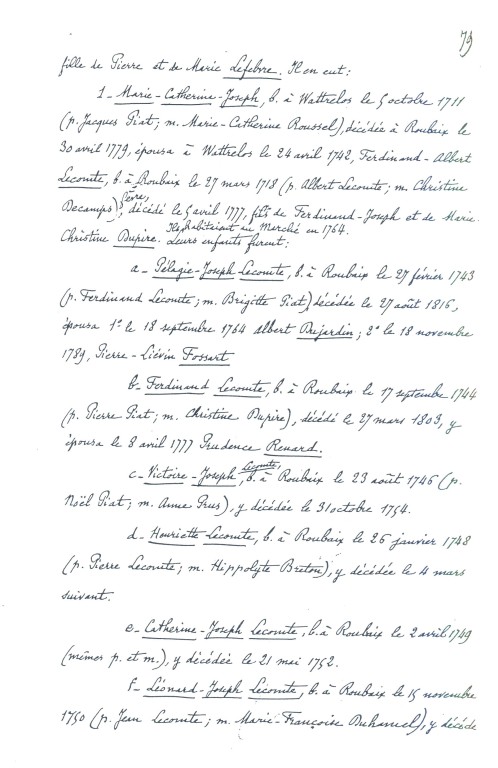 79
fille de Pierre et de Marie Lefebvre. Il en eut :
1_ Marie-Catherine-Joseph, b. à Wattrelos le 5 octobre 1711
(p. Jacques Piat; m. Marie-Catherine Roussel), décédée à Roubaix le
30 avril 1779, épousa à Wattrelos le 24 avril 1742, Ferdinand-Albert
Lecomte, b. à Roubaix le 27 mars 1718 (p. Albert Lecomte; m. Christine
Decamps), décédé le 5 avril 1777, fils de Ferdinand-Joseph et de Marie-
Christine Dupire. Ils habitaient au Marché en 1764.
Leurs enfants furent :
a_ Pélagie-Joseph Lecomte, b. à Roubaix le 27 février 1743
(p. Ferdinand Lecomte; m. Brigitte Piat), décédée le 27 août 1816,
épousa 1° le 18 septembre 1764 Albert Dujardin; 2° le 18 novembre
1789, Pierre-Liévin Fossart
b_ Ferdinand Lecomte, b. à Roubaix le 17 septembre 1744
(p. Pierre Piat; m. Christine Dupire), décédé le 27 mars 1803, y
épousa le 8 avril 1777 Prudence Renard.
c_ Victoire-Joseph Lecomte, b. à Roubaix le 23 août 1746 (p.
Noël Piat; m. Anne Prus), y décédée le 31 octobre 1754.
d_ Henriette Lecomte, b. à Roubaix le 26 janvier 1748
(p. Pierre Lecomte; m. Hippolyte Breton), y décédée le 4 mars
suivant.
e_ Catherine-Joseph Lecomte, b. à Roubaix le 2 avril 1749
(mêmes p. et m.), y décédée le 21 mai 1752.
f_ Léonard-Joseph Lecomte, b. à Roubaix le 15 novembre
1750 (p. Jean Lecomte; m. Marie-Françoise Duhamel), y décédé